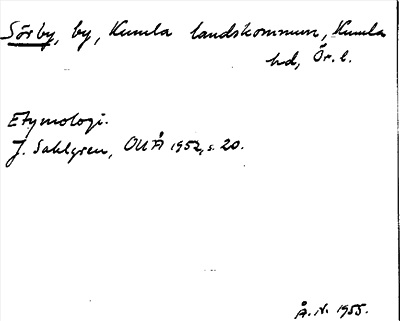 Sörby, by, Kumla landskommun, Kumla
hd, Ör. l.
Etymologi.
J. Sahlgren, OUÅ 1952, s. 20.
Å. N. 1955.